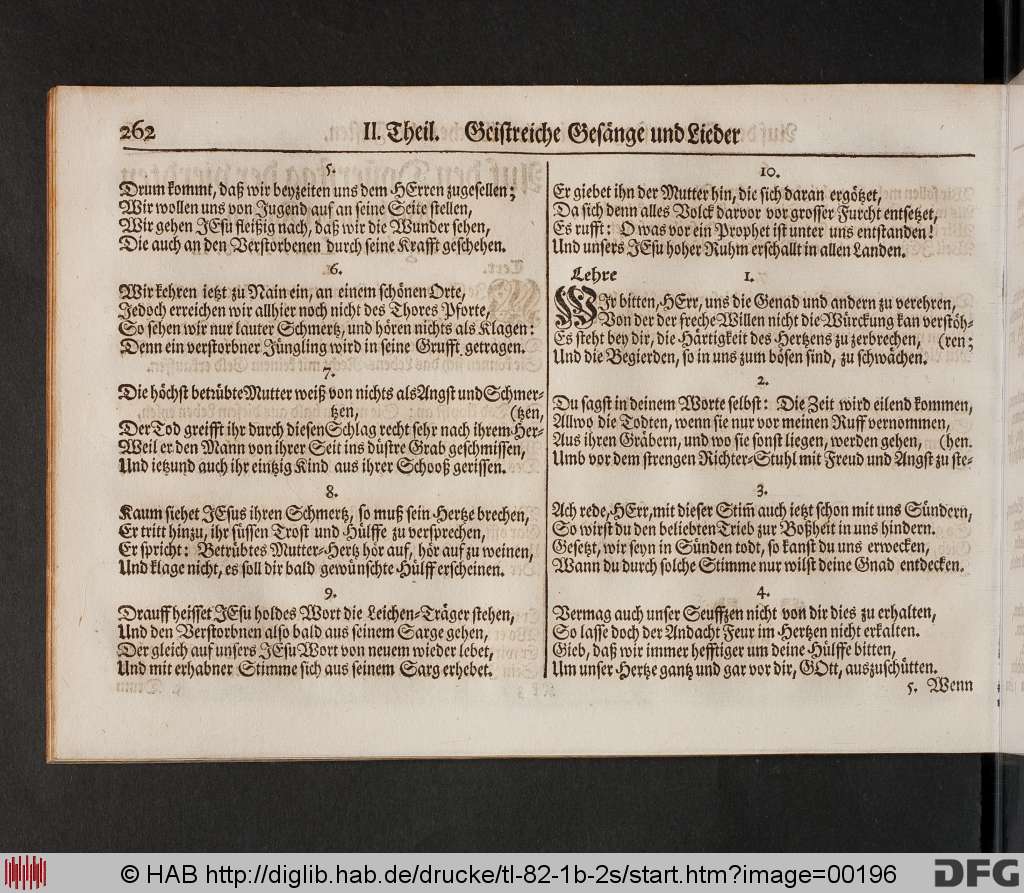 262 II. Theil. Geistreiche Gesänge und Lieder
5.
Drum kommt, daß wir beyzeiten uns dem HErren zugesellen;
Wir wollen uns von Jugend auf an seine Seite stellen,
Wir gehen JEsu fleißig nach, daß wir die Wunder sehen,
Die auch an den Verstorbenen durch seine Krafft geschehen.
6.
Wir kehren ietzt zu Nain ein, an einem schönen Orte,
Jedoch erreichen wir allhier noch nicht des Thores Pforte,
So sehen wir nur lauter Schmertz, und hören nichts als Klagen:
Denn ein verstorbner Jüngling wird in seine Grufft getragen.
7.
Die höchst betrübte Mutter weiß von nichts als Angst und Schmer-
tzen, (tzen,
Der Tod greifft ihr durch diesen Schlag recht sehr nach ihrem Her-
Weil er den Mann von ihrer Seit ins düstre Grab geschmissen,
Und ietzund auch ihr eintzig Kind aus ihrer Schooß gerissen.
8.
Kaum siehet JEsus ihren Schmertz, so muß sein Hertze brechen,
Er tritt hinzu, ihr süssen Trost und Hülffe zu versprechen,
Er spricht: Betrübtes Mutter-Hertz hör auf, hör auf zu weinen,
Und klage nicht, es soll dir bald gewünschte Hülff erscheinen.
9.
Drauff heisset JEsu holdes Wort die Leichen-Träger stehen,
Und den Verstorbnen also bald aus seinem Sarge gehen,
Der gleich auf unsers JEsu Wort von neuem wieder lebet,
Und mit erhabner Stimme sich aus seinem Sarg erhebet.
10.
Er giebet ihn der Mutter hin, die sich daran ergötzet,
Da sich denn alles Volck darvor vor grosser Furcht entsetzet,
Es rufft: O was vor ein Prophet ist unter uns entstanden!
Und unsers JEsu hoher Ruhm erschallt in allen Landen.
Lehre 1.
WIr bitten, HErr, uns die Genad und andern zu verehren,
Von der der freche Willen nicht die Würckung kan verstöh-
Es steht bey dir, die Härtigkeit des Hertzens zu zerbrechen, (ren;
Und die Begierden, so in uns zum bösen sind, zu schwächen.
2.
Du sagst in deinem Worte selbst: Die Zeit wird eilend kommen,
Allwo die Todten, wenn sie nur vor meinen Ruff vernommen,
Aus ihren Gräbern, und wo sie sonst liegen, werden gehen, (hen.
Umb vor dem strengen Richter-Stuhl mit Freud und Angst zu ste-
3.
Ach rede, HErr, mit dieser Stim̃ auch ietzt schon mit uns Sündern,
So wirst du den beliebten Trieb zur Boßheit in uns hindern.
Gesetzt, wir seyn in Sünden todt, so kanst du uns erwecken,
Wann du durch solche Stimme nur wilst deine Gnad entdecken.
4.
Vermag auch unser Seuffzen nicht von dir dies zu erhalten,
So lasse doch der Andacht Feur im Hertzen nicht erkalten.
Gieb, daß wir immer hefftiger um deine Hülffe bitten,
Um unser Hertze gantz und gar vor dir, GOtt, auszuschütten.
5. Wenn
© HAB http://diglib.hab.de/drucke/tl-82-1b-2s/start.htm?image=00196
DFG